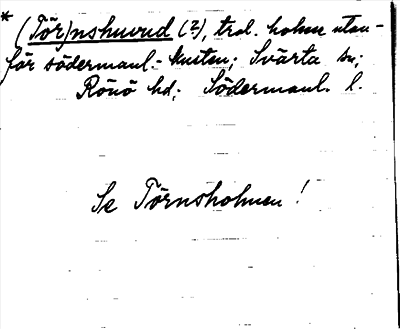 * (Tör)nshuvud (?), trol. holme utan-
för södermanl.-kusten; Svärta sn;
Rönö hd; Södermanl. l.
Se Törnsholmen!